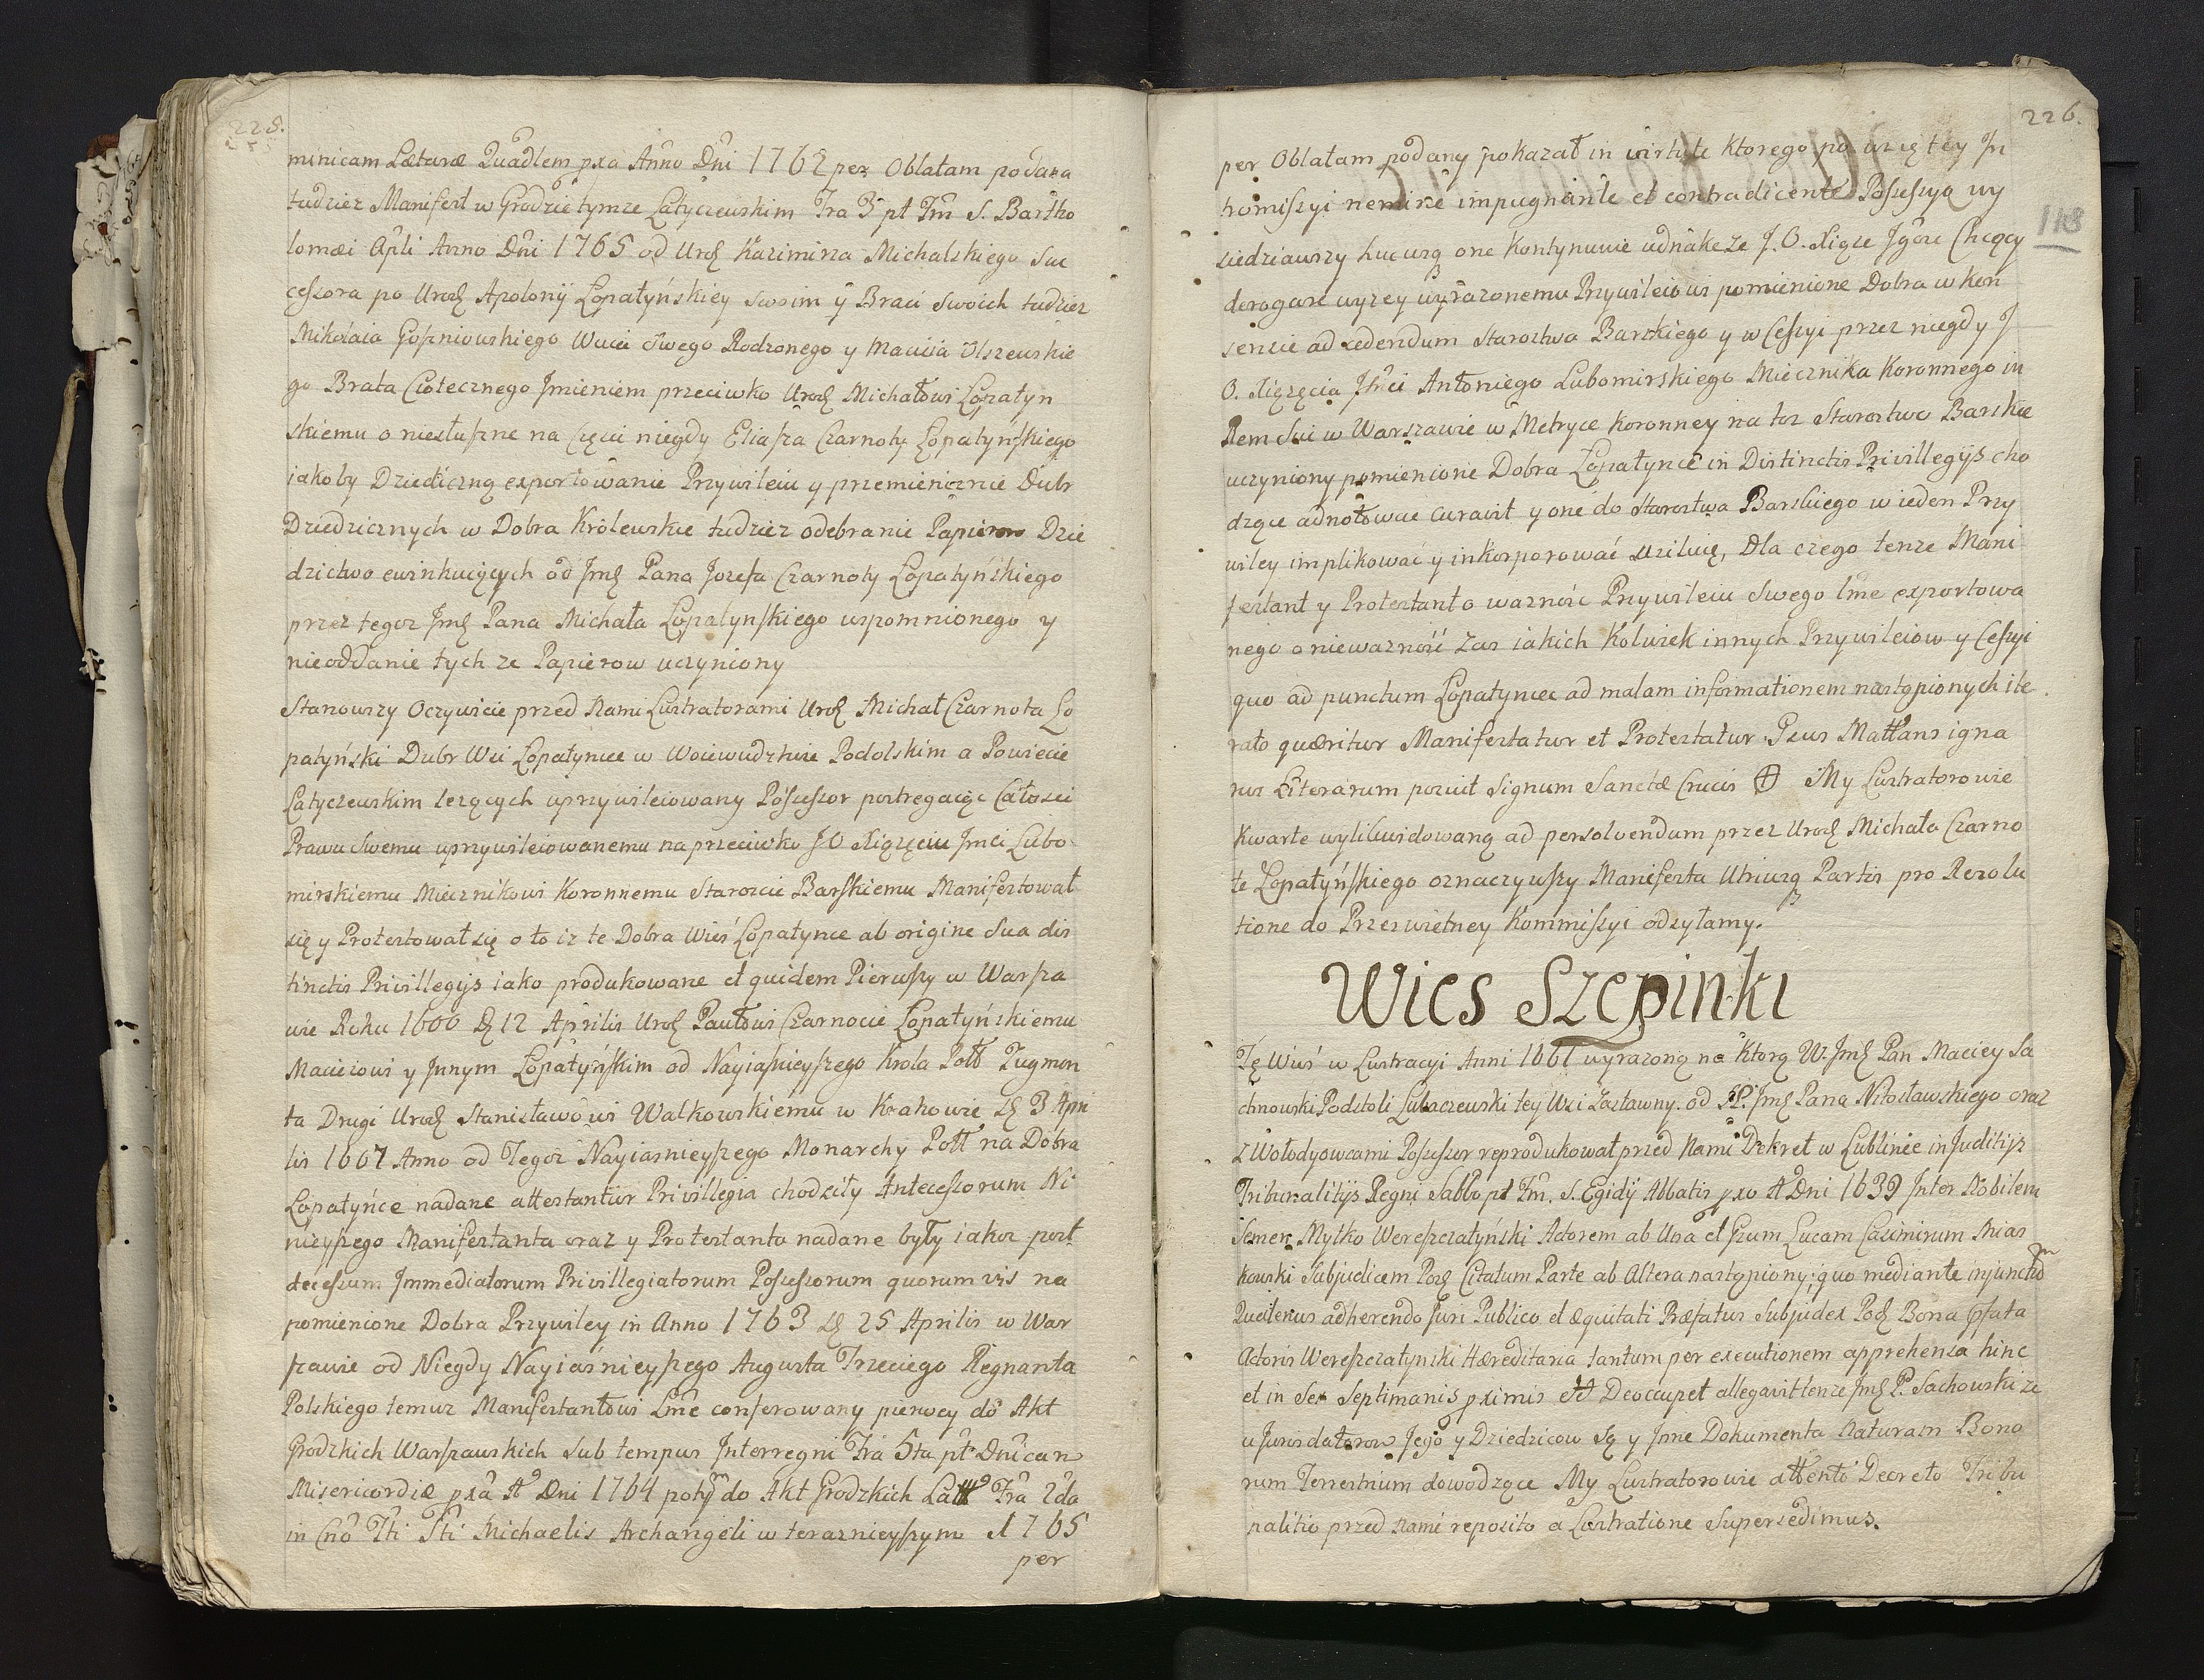 225.
minicam Lætare Quadlem pxa Anno Dni 1762 per Oblatam podana
tudziez Manifest w Grodzie tymze Latyczewskim Fra 3 pt Fm S. Bartho
lomæi Apli Anno Dni 1765 od Urod Kazimirza Michalskiego Suc
cessora po Urod Apolonij Łopatyńskiey swoim y Braci swoich tudziez
Mikołaia Wuia swego Rodzonego y Macieia Olszewskie
go Brata Ciotecznego Jmieniem przeciwko Urod Michałowi Łopatyn
skiemu o niesłuszne na Częsci niegdy Eliasza Czarnoty Łopatyńskiego
iakoby Dziedziczną exportowanie Przywileiu y przemienicznie Dubr
Dziedzicznych w Dobra Królewskie tudziez odebranie Papierow Dzie
dzictwo ewinkuiących od Jmę Pana Jozefa Czarnoty Łopatyńskiego
przez tegoz Jmę Pana Michała Łopatynskiego wspomnionego y
nieoddanie tych ze Papierow uczyniony
Stanowszy Oczywicie przed Nami Lustratorami Urod Michał Czarnota Ło
patyński Dubr Wsi Łopatynce w Woiewudztwie Podolskim a Powiecie
Latyczewskim lezących uprzywileiowany Possessor postregaiąc Całosci
Prawu Swemu uprzywileiowanemu naprzeciwko JO Xiązęciu Jmci Lubo
mirskiemu Miecznikowi Koronnemu Staroscie Barskiemu Manifestował
się y Protestował się o to iz te Dobra Wieś Łopatynce ab origine sua dis
tinctis Privillegijs iako produkowane et quidem Pierwszy w Warsza
wie Roku 1606 D 12 Aprilis Urod Pawłowi Czarnocie Łopatyńskiemu
Macieiowi y Jnnym Łopatyńskim od Nayiasnieyszego Krola Poll Zugmon
ta Drugi Urod Stanisławowi Walkowskiemu w Krakowie D 3 Apri
lis 1667 Anno od Tegoz Nayiasnieyszego Monarchy Poll na Dobra
Łopatyńce nadane attestantur Privillegia chodziły Antecessorum Ni
nieyszego Manifestanta oraz y Protestanta nadane były iakoz post
decessum Jmmediatorum Privillegiatorum Possessorum quorum vis na
pomienione Dobra Przywiley in Anno 1763 D 25 Aprilis w War
szawie od Niegdy Nayiaśnieyszego Augusta Trzeciego Regnanta
Polskiego temuz Manifestantowi Lme conferowany pierwey do Akt
Grodzkich Warszawskich sub tempus Jnterregni Fra 5ta pt Dnicam
Misericordiæ pxa A Dni 1764 potym do Akt Grodzkich Latt Fra 2da
in Cno Fti Sti Michaelis Archangeli w teraznieyszym 1765
per
226.
118
per Oblatam podany pokazał in virtute Ktorego po wziętey Jn
tromissyi nemine impugnante et contradicente Possessyą wy
siedziawszy hucusq one Kontynuuie udnakze ze J.O. Xiąze Jgosc Chcący
derogare wyzey wyrazonemu Przywileiowi pomienione Dobra w Kon
sensie ad cedendum Starostwa Barskiego y w Cessyi przez niegdy J
O. Xiązęcia Jmci Antoniego Lubomirskiego Miecznika Koronnego in
Rem Sui w Warszawie w Metryce Koronney na toz Starostwo Barskie
uczyniony pomienione Dobra Łopatynce in Distinctis Privillegijs cho
dzące adnotowac curavit y one do Starostwa Barskiego w ieden Przy
wiley implikować y inkorporować usiłuię, Dla czego tenze Mani
festant y Protestant o waznosc Przywileiu swego Lme exportowa
nego o niewazność zas iakich Kolwiek innych Przywileiow y Cessyi
quo ad punctum Łopatyniec ad malam informationem nastąpionych ite
rato quæritur Manifestatur et Protestatur. Psus Mattans igna
rus Literarum posuit Signum Sanctæ Crucis ⊕ My Lustratorowie
Kwarte wylikwidowaną ad persolvendum przez Urod Michała Czarno
te Łopatyńskiego oznaczywszy Manifesta Utriusq Partis pro Rezolu
tione do Przeswietney Kommissyi odsyłamy.
Wies Szepinki
Tę Wieś w Lustracyi Anni 1661 wyrazoną na Ktorą W. Jmę Pan Maciey Sa
chnowski Podstoli Lubaczewski tey Wsi Zastawny od SP. Jmę Pana Nitosławskiego oraz
z Wołodyowcami Possessor reprodukował przed Nami Dekret w Lublinie in Juditijs
Tribunalitijs Regni Sabbo pt Fm. S. Egidij Abbatis pxo A Dni 1639 Jnter Nobilem
Semen Mytko Wereszczatyński Actorem ab Una et Gsum Lucam Casimirum Mias
kowski Subjudicem Pod Citatum Parte ab Altera nastąpiony; quo mediante injunctum
Quatenus adherendo Juri Publico et æquitati Præfatus Subjudex Pod Bona psata
Actoris Wereszczatynski Hæreditaria tantum per executionem apprehensa hinc
et in Sex Septimanis pximis Deoccupet allegavit tenze Jmę P. Sachowski ze
u Jurisdatorow Jego y Dziedzicow Są y Jnne Dokumenta Naturam Bono
rum Terrestrium dowodzące My Lustratorowie attento Decreto Tribu
nalitio przed Nami reposito a Lustratione Supersedimus.